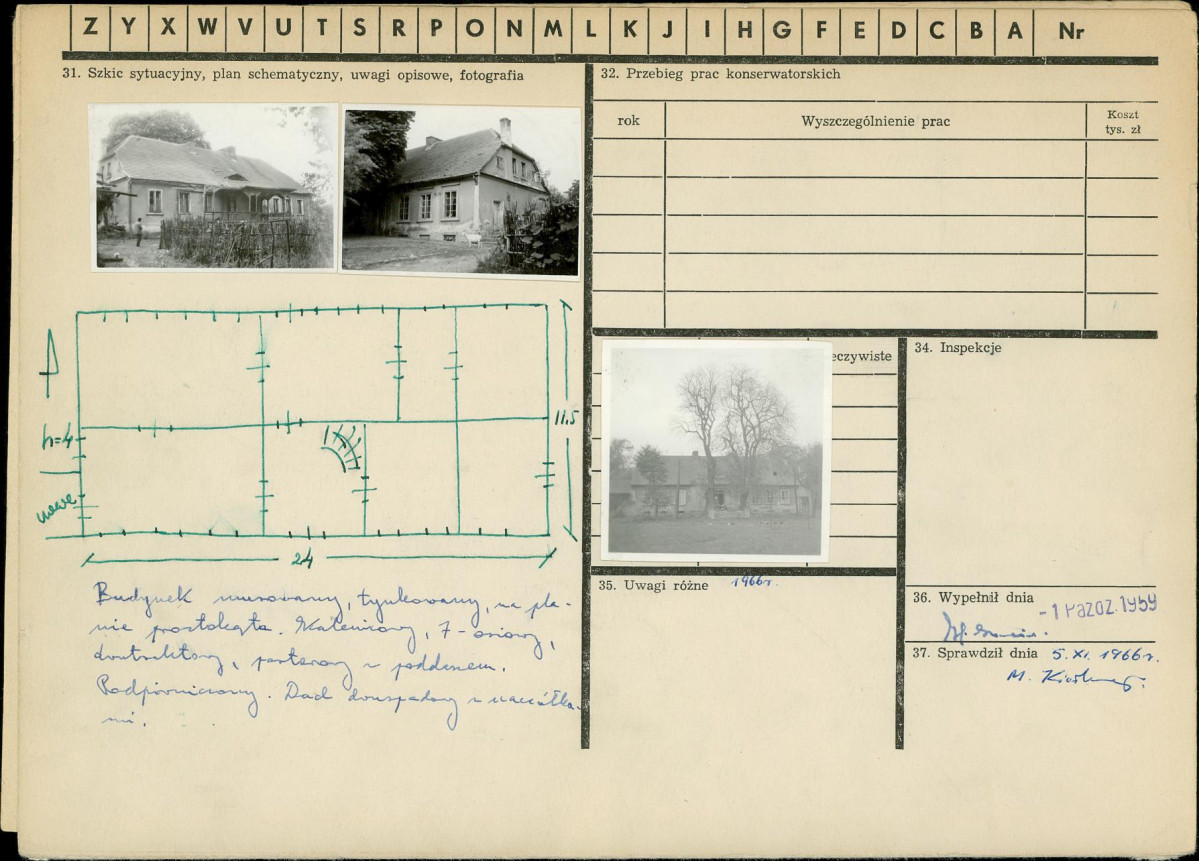 Z Y X W V U T S R P O N M L K J I H G F E D C B A Nr
31. Szkic sytuacyjny, plan schematyczny, uwagi opisowe, fotografia
h=4
11.5
24
Budynek murowany, tynkowany, na pla-
nie prostokąta. Kalenicowy, 7-osiowy,
dwutraktowy, parterowy z poddaszem.
Podpiwniczony. Dach dwuspadowy z naczółka-
mi.
32. Przebieg prac konserwatorskich
rok Wyszczególnienie prac Koszt
tys. zł
eczywiste
34. Inspekcje
35. Uwagi różne 1966r.
36. Wypełnił dnia -1 PAZDZ. 1959
37. Sprawdził dnia 5. XI. 1966r.
M.